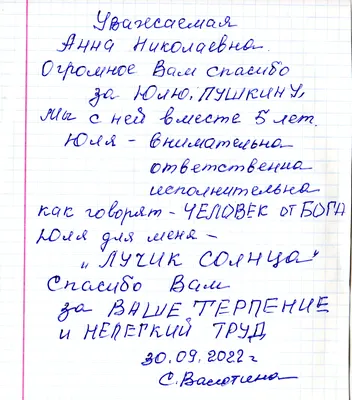 Уважаемая
Анна Николаевна.
Огромное Вам спасибо
за Юлю, ПУШКИНУ,
Мы с ней вместе 5 лет.
Юля - внимательна
ответственна
исполнительна
как говорят - ЧЕЛОВЕК от БОГА
Юля для меня -
„ЛУЧИК СОЛНЦА"
Спасибо Вам
за ВАШЕ ТЕРПЕНИЕ
и НЕЛЕГКИЙ ТРУД
30.09.2022 г